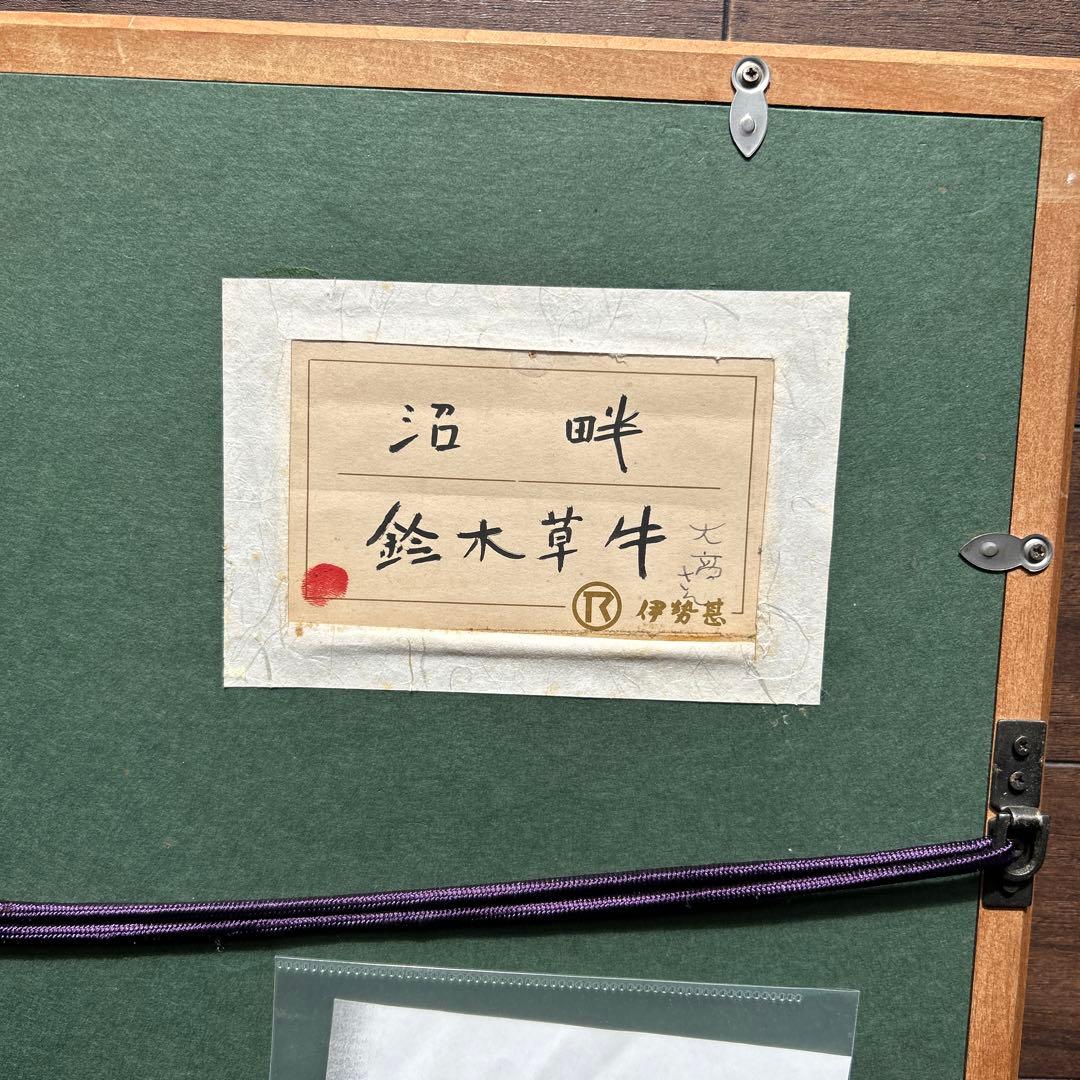 沼畔
鈴木草牛
大高
さん
伊勢甚